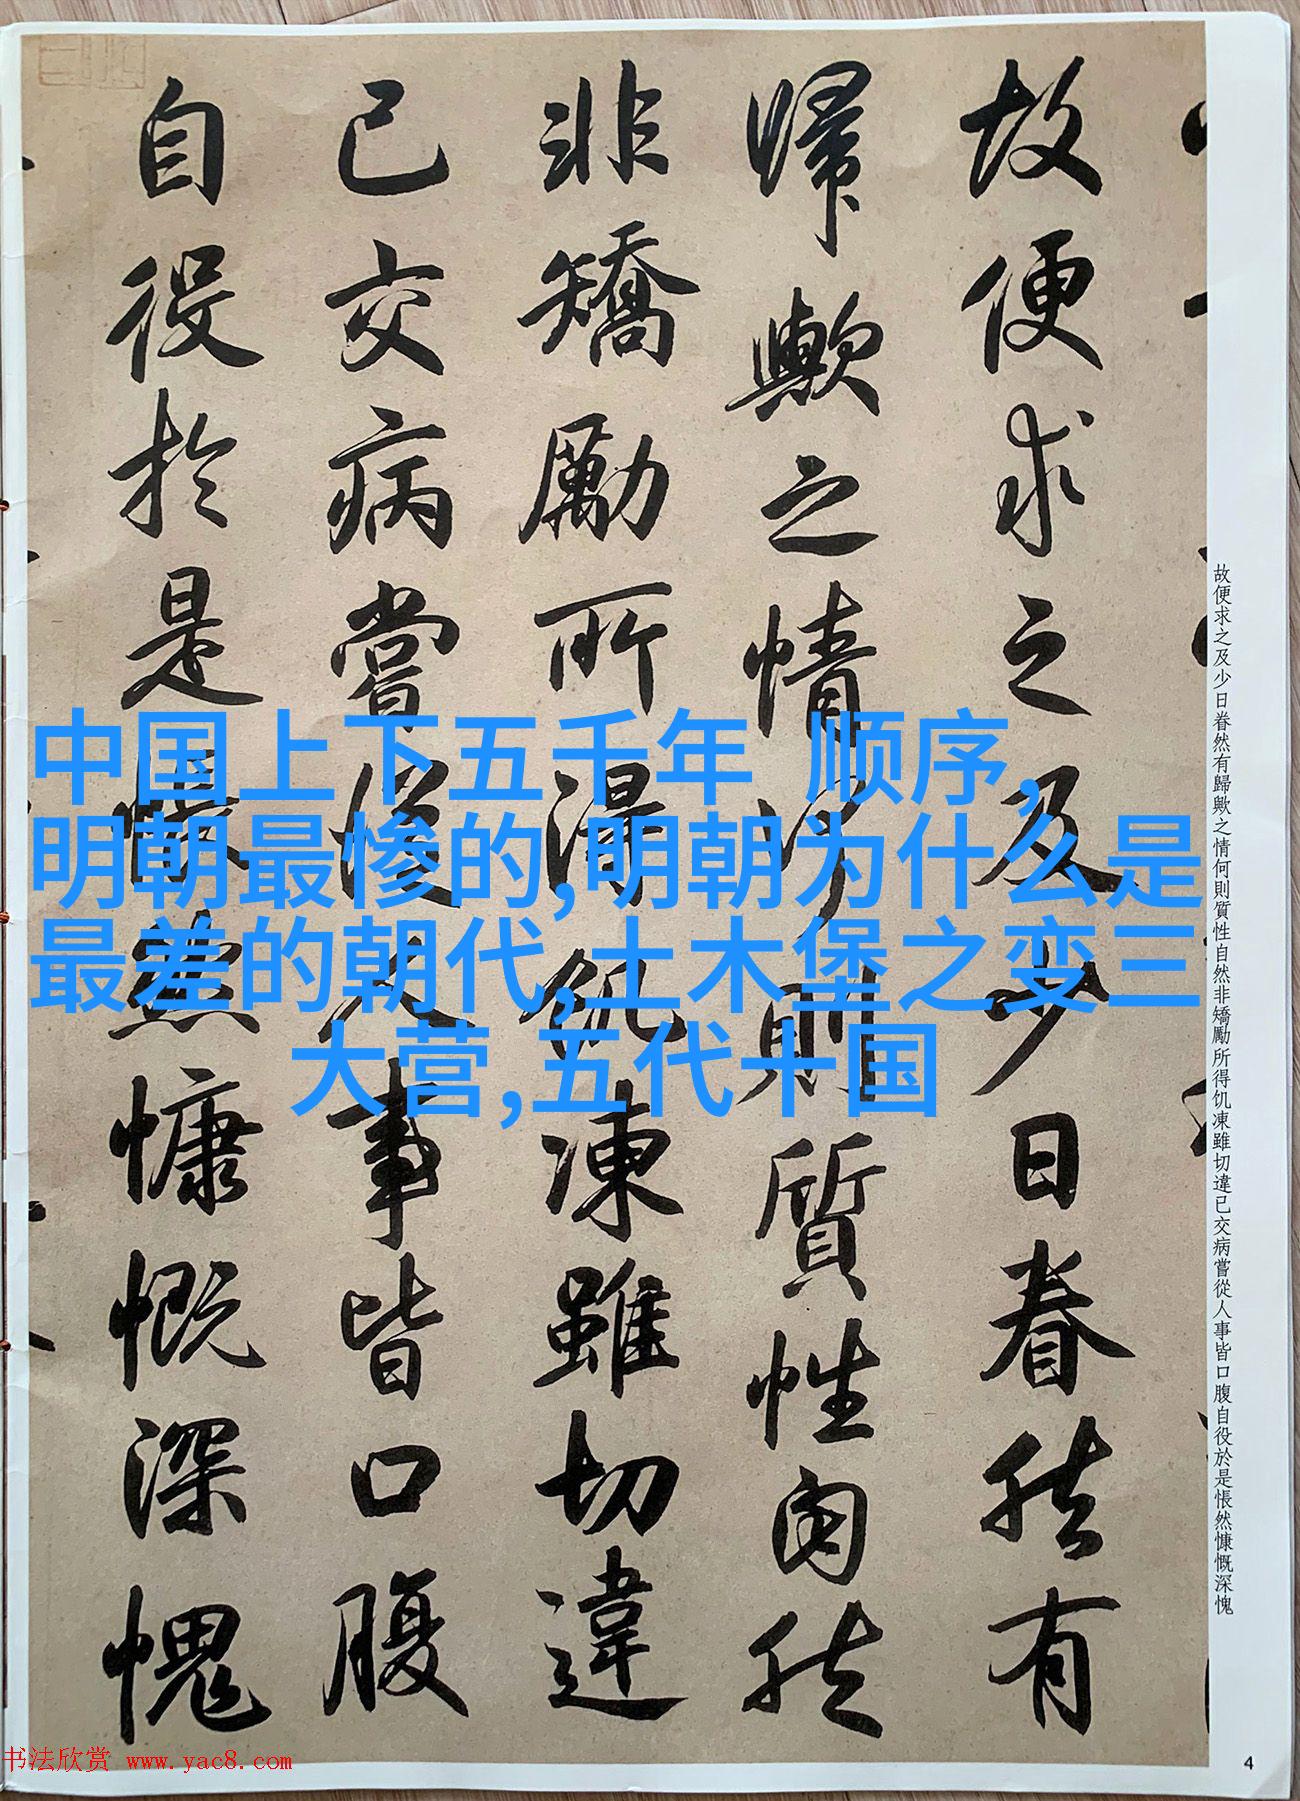 故便求之及少日眷然有歸歟之情何則質性自然非矯勵所得饥凍雖切違已交病嘗從人事皆口腹自役於是悵然慷慨深愧
故便求之及少日眷然有
歸歟之情何則質性自然
非矯勵所得飢凍雖切違
已交病嘗從人事皆口腹
自役於是悵然慷慨深愧
中国上下五千年 顺序,
明朝最惨的,明朝为什么是
最差的朝代,土木堡之变三
大营,五代十国
书法欣赏 www.yac8.com
4